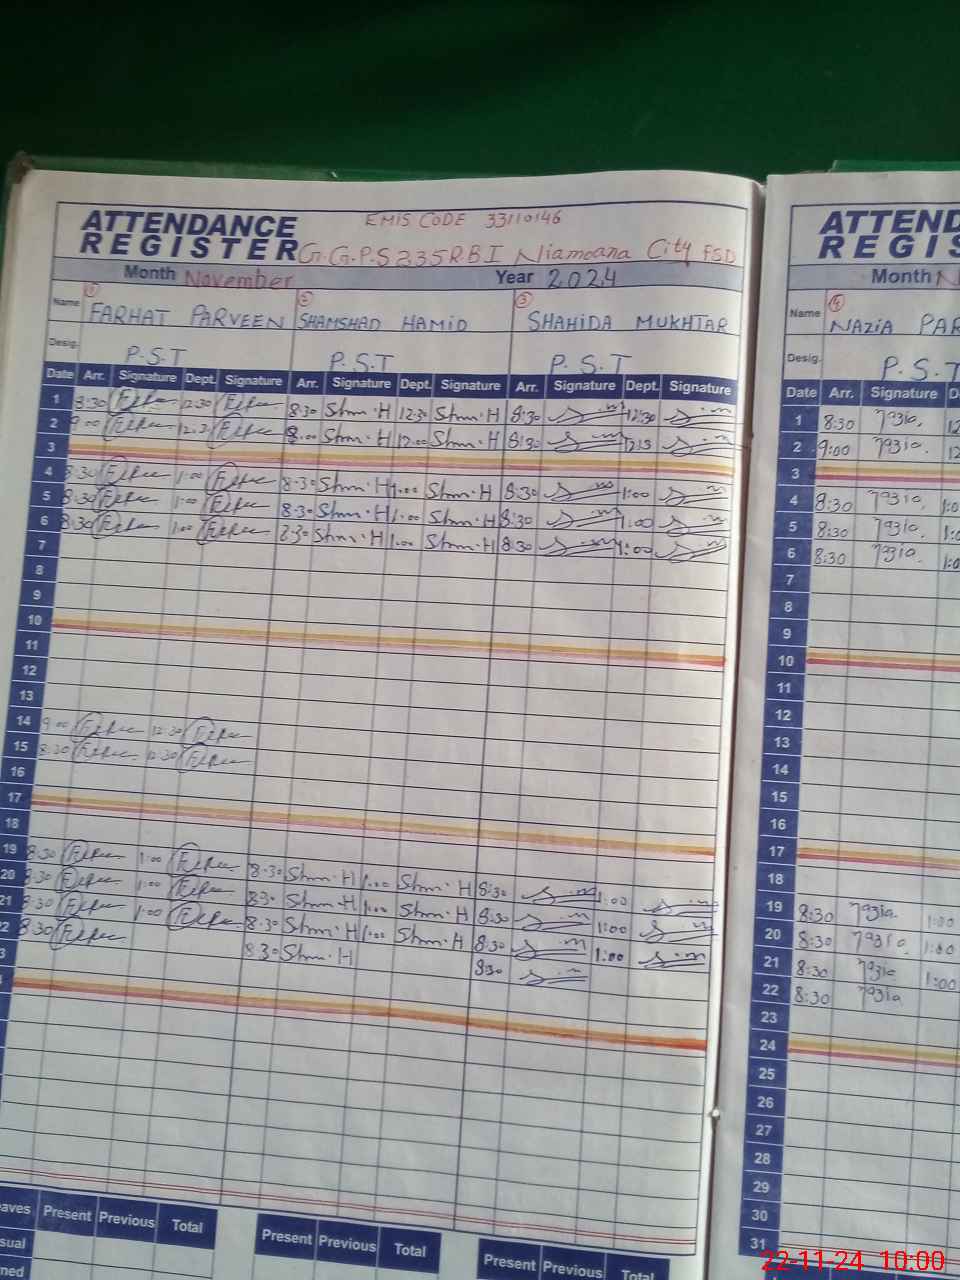 ATTENDANCE REGISTER
EMIS CODE 33110146
G.G.P.S 235 RB I Niamoana City FSD
Month November Year 2024
Name FARHAT PARVEEN SHAMSHAD HAMID SHAHIDA MUKHTAR
Desig. P.S.T P.S.T P.S.T
Date Arr. Signature Dept. Signature Arr. Signature Dept. Signature Arr. Signature Dept. Signature
1 8:30 12:30 8:30 Shm.H 12:30 Shm.H 8:30 12:30
2 9:00 12:30 8:00 Shm.H 12:00 Shm.H 8:30
3
4 8:30 1:00 8:30 Shm.H 1:00 Shm.H 8:30 1:00
5 8:30 1:00 8:30 Shm.H 1:00 Shm.H 8:30 1:00
6 8:30 1:00 8:30 Shm.H 1:00 Shm.H 8:30 1:00
7
8
9
10
11
12
13
14 9:00 12:30
15 8:30 12:30
16
17
18
19 8:30 1:00 8:30 Shm.H 1:00 Shm.H 8:30 1:00
20 8:30 1:00 8:30 Shm.H 1:00 Shm.H 8:30 1:00
21 8:30 1:00 8:30 Shm.H 1:00 Shm.H 8:30 1:00
2 8:30 8:30 Shm.H 8:30
3
eaves Present Previous Total Present Previous Total Present Previous Total
sual
ned
ATTEND
REGIS
Month N
Name NAZIA PAR
Desig. P.S.T
Date Arr. Signature D
1 8:30 12
2 9:00 12
3
4 8:30 1:0
5 8:30 1:0
6 8:30 1:0
7
8
9
10
11
12
13
14
15
16
17
18
19 8:30 1:00
20 8:30 1:00
21 8:30 1:00
22 8:30
23
24
25
26
27
28
29
30
31
22-11-24 10:00